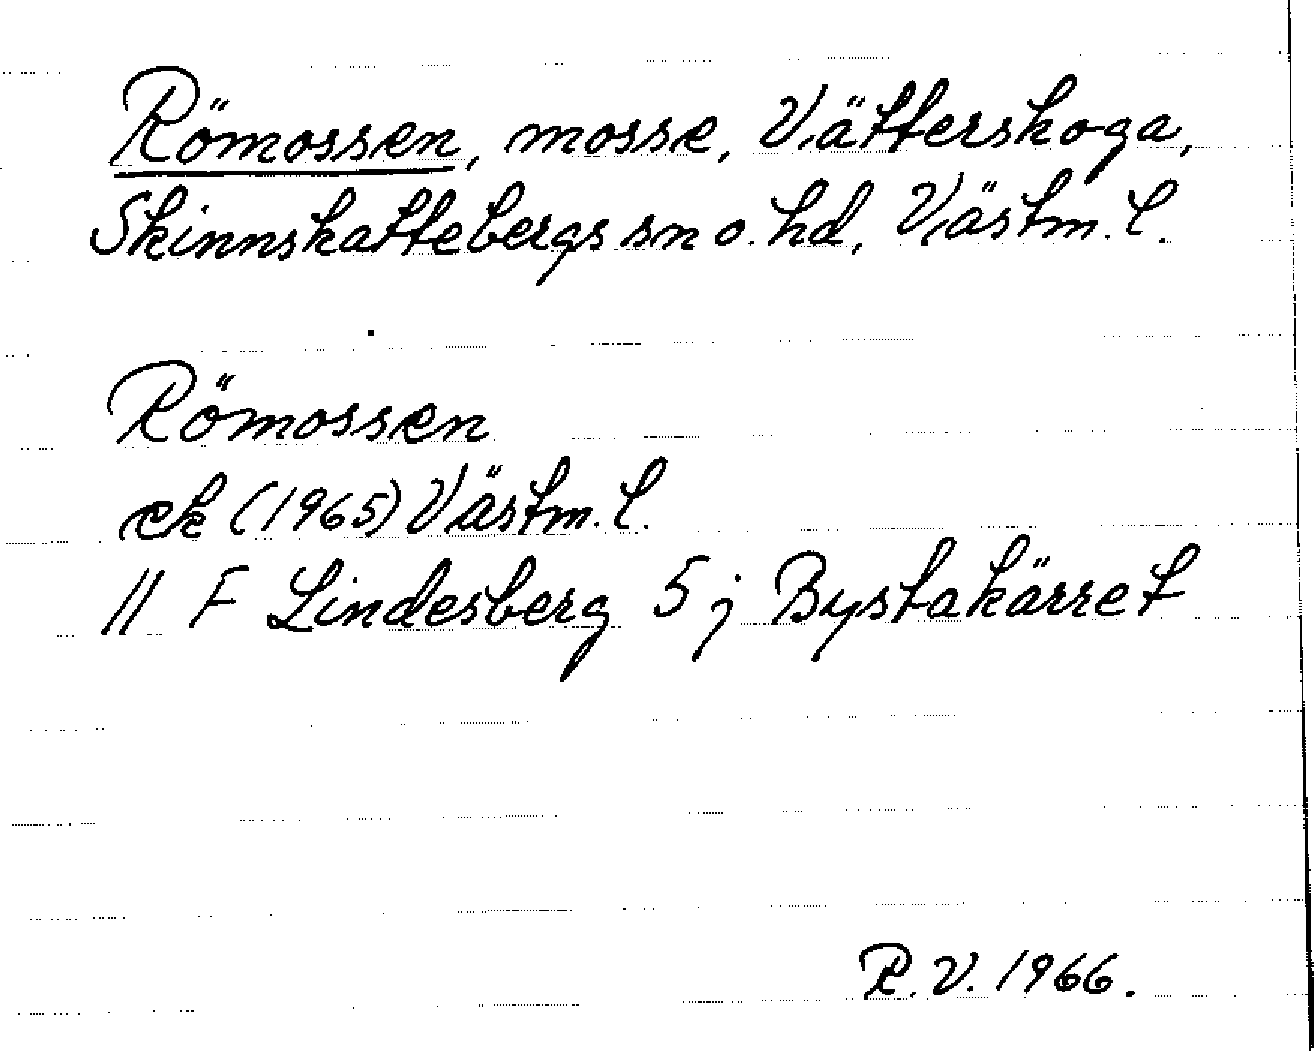 Römossen, mosse, Vätterskoga,
Skinnskattebergs sn o. hd, Västm. l.
Römossen
ek (1965) Västm. l.
11 F Lindesberg 5 j Bystakärret
R. V. 1966.